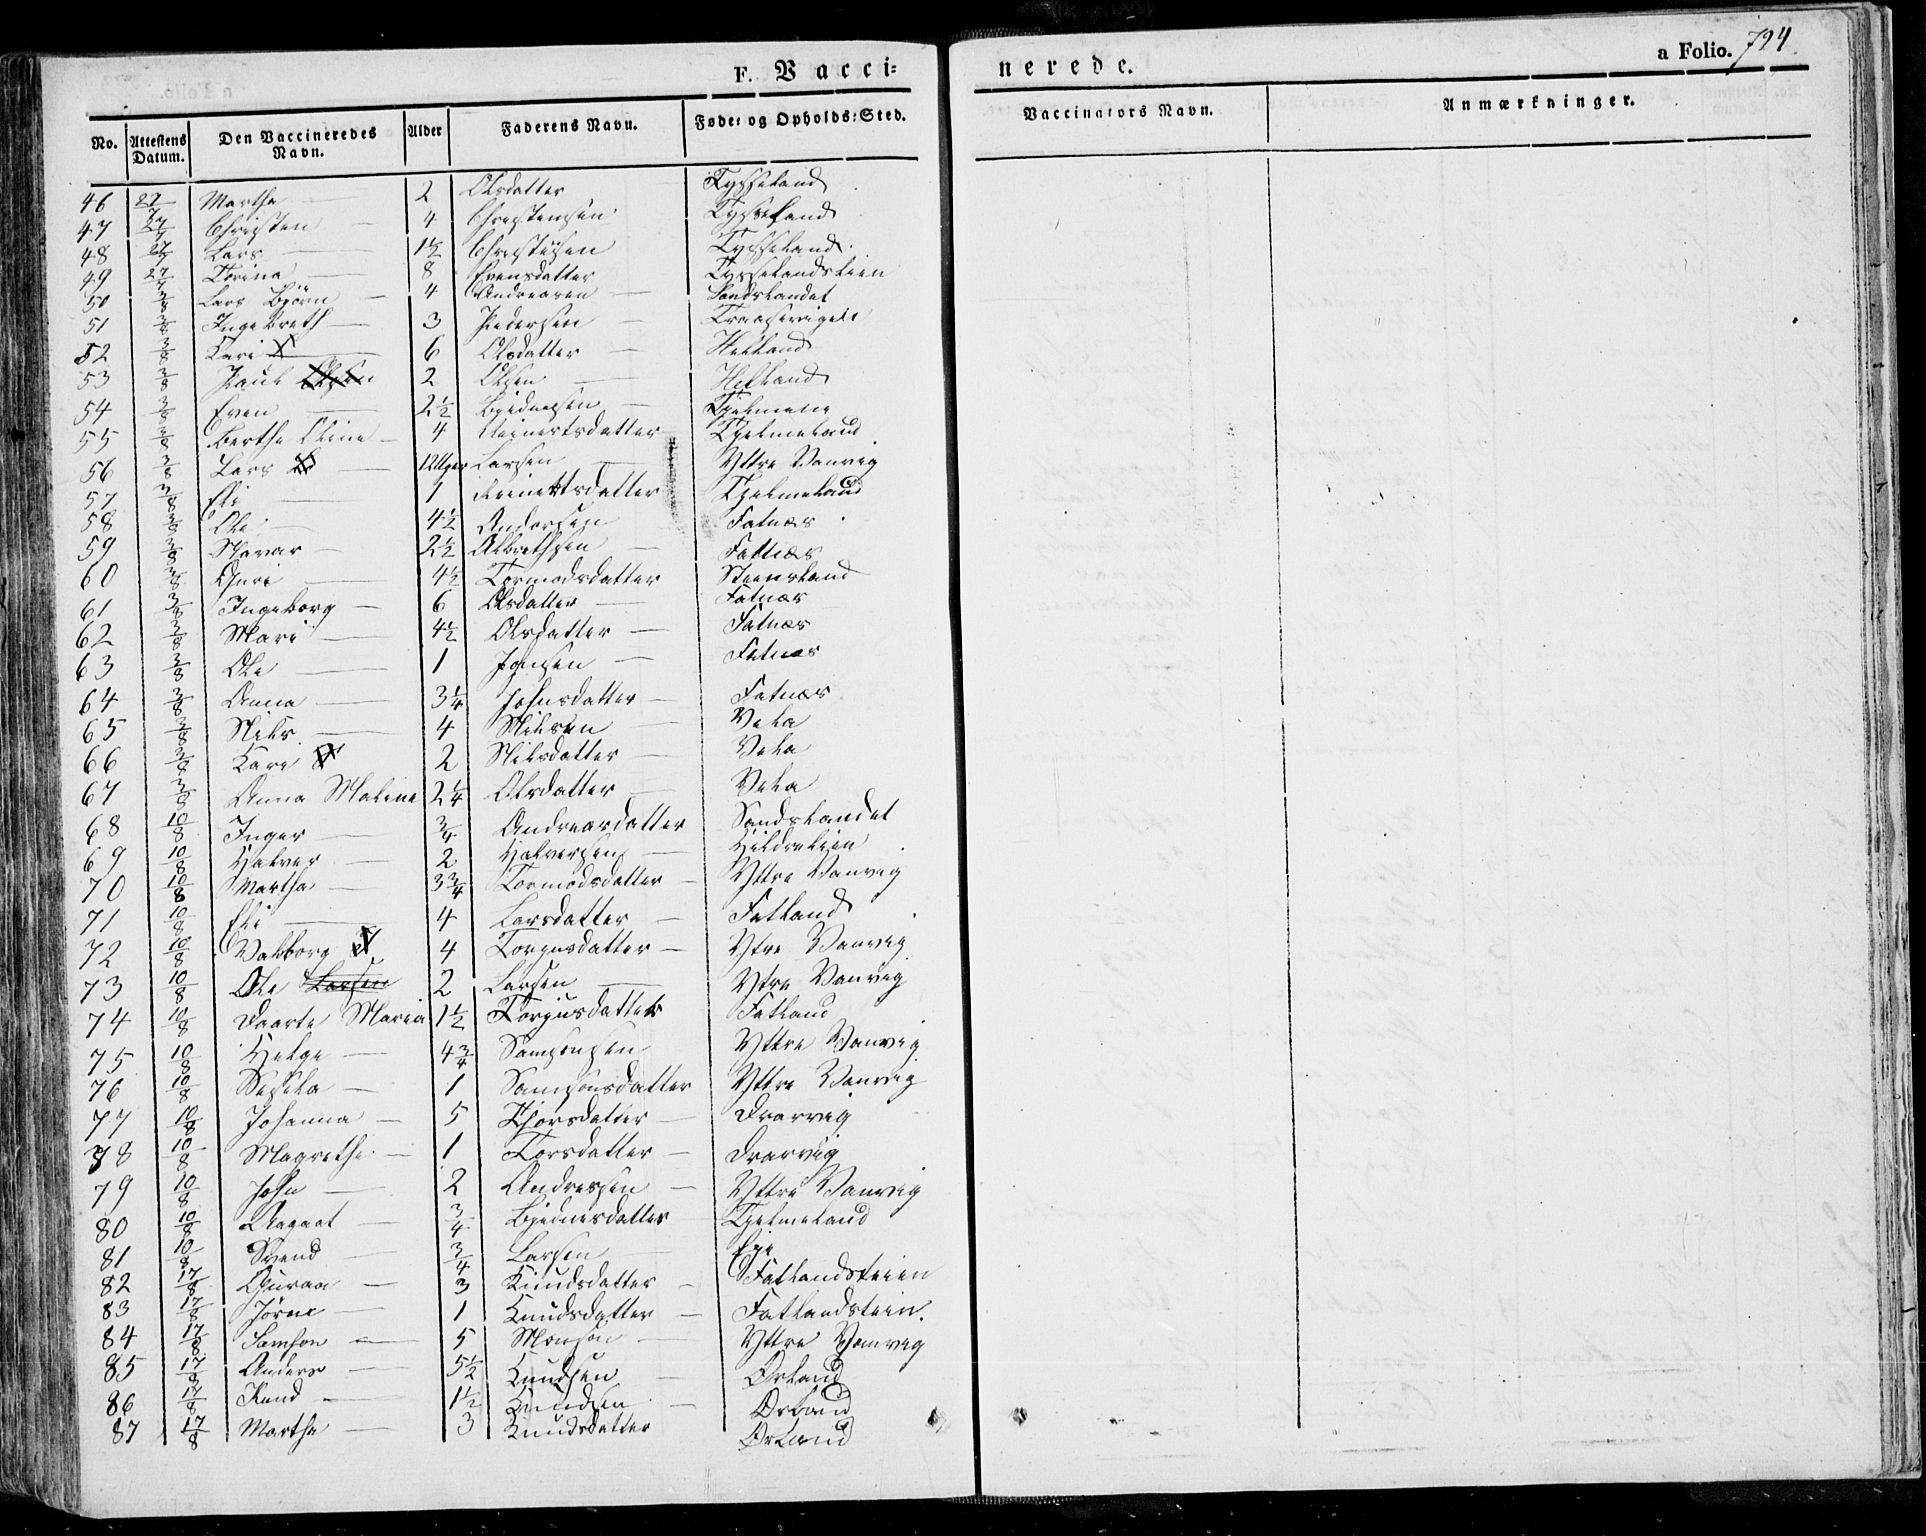 F. Vacci-
nerede.
a Folio. 794
No. Attestens Datum. Den Vaccineredes Navn. Alder Faderens Navn. Føde- og Opholds-Sted. Vaccinators Navn. Anmærkninger.
46 27/7 Martha 2 Olsdatter Tysseland
47 27/7 Christen 4 Christensen Tysseland
48 27/7 Lars 1½ Christensen Tysseland
49 27/7 Torina 8 Evensdatter Tysselandsteien
50 3/8 Lars Bjørn 4 Andreasen Sandslandet
51 3/8 Ingebreth 3 Pedersen
52 3/8 Kari 6 Olsdatter Helland
53 3/8 Paul Olsen 2 Olsen Helland
54 3/8 Even 2½
55 3/8 Berthe Oline 4 Reinertsdatter Tjelmeland
56 3/8 Lars 12 Uger Larsen Yttre Vanvig
57 3/8 Eli 1 Reinertsdatter Tjelmeland
58 3/8 Ole 4½ Andersen Fatnæs
59 3/8 Havar 2½ Albrethsen Fatnæs
60 3/8 Guri 4½ Tormodsdatter Steensland
61 3/8 Ingeborg 6 Olsdatter Fatnæs
62 3/8 Mari 4½ Olsdatter Fatnæs
63 3/8 Ole 1 Jonsen Fatnæs
64 3/8 Anna 3¼ Johnsdatter Fatnæs
65 3/8 Nils 4 Nilsen Vela
66 3/8 Kari 2 Nilsdatter Vela
67 3/8 Anna Malene 2¼ Olsdatter Vela
68 10/8 Inger ¾ Andreasdatter Sandslandet
69 10/8 Halver 2 Halversen Hildreleien
70 10/8 Martha 3¾ Tormodsdatter Yttre Vanvig
71 10/8 Eli 4 Larsdatter Fatland
72 10/8 Valborg 4 Torgusdatter Ytre Vanvig
73 10/8 Ole Larsen 2 Larsen Ytre Vanvig
74 10/8 Daarte Maria 1½ Torgusdatter Fatland
75 10/8 Helge 4¾ Samsonsen Yttre Vanvig
76 10/8 Sissela 1 Samsonsdatter Yttre Vanvig
77 10/8 Johanna 5 Thorsdatter Drarvig
78 10/8 Magrethe 1 Torsdatter Drarvig
79 10/8 John 2 Andersen Yttre Vanvig
80 10/8 Aagaat ¾ Tjelmeland
81 10/8 Svend ¾ Larsen Eie
82 17/8 Guraa 3 Knudsdatter Fatlandsteien
83 17/8 Jørne 1 Knudsdatter Fatlandstein
84 17/8 Samson 5 Monsen Yttre Vanvig
85 17/8 Anders 5½ Knudsen Ørland
86 17/8 Knud 1½ Knudsen Ørland
87 17/8 Martha 3 Knudsdatter Ørland